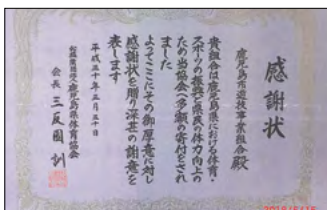 感謝状
鹿児島市遊技事業組合殿
貴組合は鹿児島県における体育・
スポーツの振興と県民の体力向上の
ため当協会へ多額の寄付をされ
ました
よってここにその御厚意に対し
感謝状を贈り深甚の謝意を
表します
平成三十年三月三十日
公益財団法人鹿児島県体育協会
会長 三反園 訓
2018/5/15